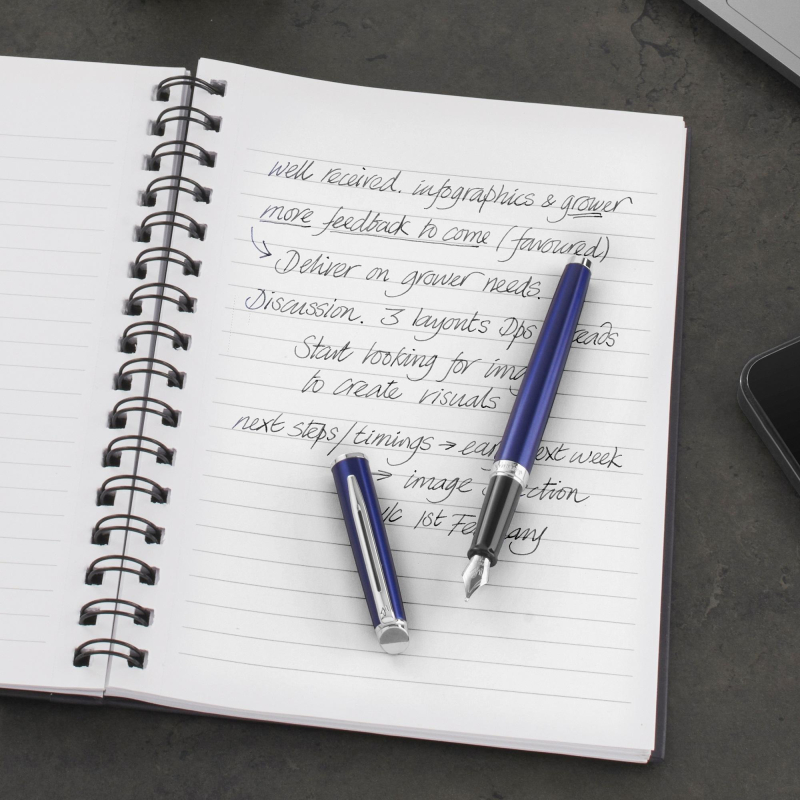 well received. infographics & grower
more feedback to come (favoured)
↳ Deliver on grower needs.
Discussion. 3 layouts Dps
Start looking for
to create visuals
next steps/timings → next week
→ image
w/c 1st